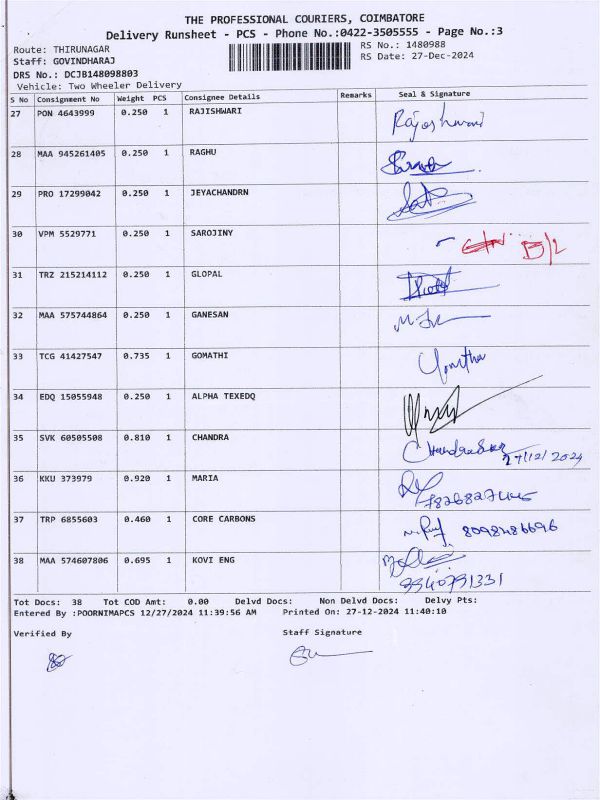 THE PROFESSIONAL COURIERS, COIMBATORE
Delivery Runsheet - PCS - Phone No.:0422-3505555 - Page No.:3
Route: THIRUNAGAR
RS No.: 1480988
Staff: GOVINDHARAJ
RS Date: 27-Dec-2024
DRS No.: DCJB148098803
Vehicle: Two Wheeler Delivery
S No Consignment No Weight PCS Consignee Details Remarks Seal & Signature
27 PON 4643999 0.250 1 RAJISHWARI Rajeshwari
28 MAA 945261405 0.250 1 RAGHU
29 PRO 17299042 0.250 1 JEYACHANDRN
30 VPM 5529771 0.250 1 SAROJINY D/L
31 TRZ 215214112 0.250 1 GLOPAL
32 MAA 575744864 0.250 1 GANESAN
33 TCG 41427547 0.735 1 GOMATHI
34 EDQ 15055948 0.250 1 ALPHA TEXEDQ
35 SVK 60505508 0.810 1 CHANDRA 27/12/2024
36 KKU 373979 0.920 1 MARIA
37 TRP 6855603 0.460 1 CORE CARBONS 8098486696
38 MAA 574607806 0.695 1 KOVI ENG 9940791331
Tot Docs: 38 Tot COD Amt: 0.00 Delvd Docs: Non Delvd Docs: Delvy Pts:
Entered By :POORNIMAPCS 12/27/2024 11:39:56 AM Printed On: 27-12-2024 11:40:10
Verified By
Staff Signature